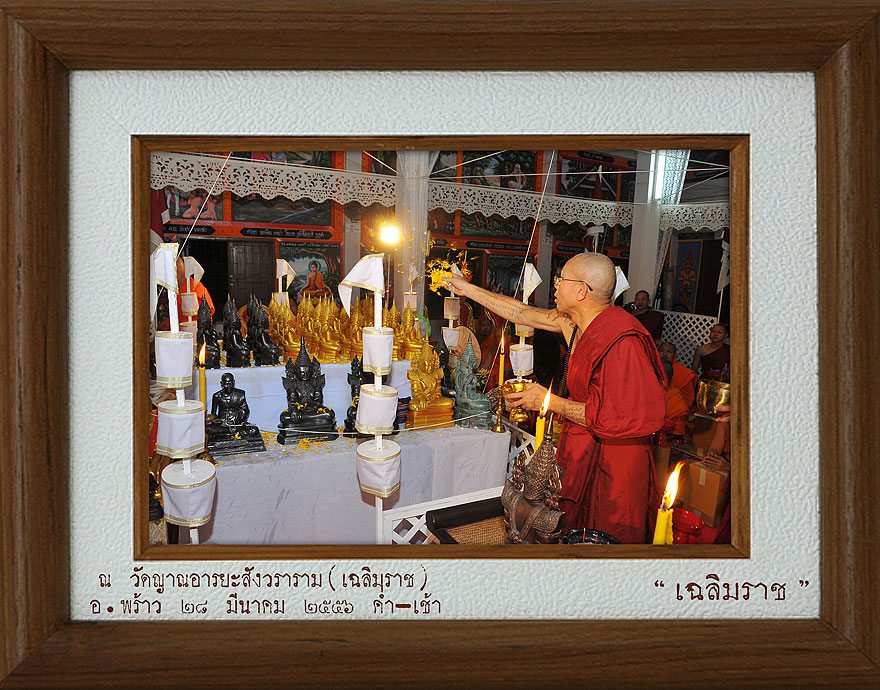 ณ วัดญาณอารยะสังวราราม (เฉลิมราช)
อ. พร้าว ๒๘ มีนาคม ๒๕๕๖ ค่ำ–เช้า
“ เฉลิมราช ”